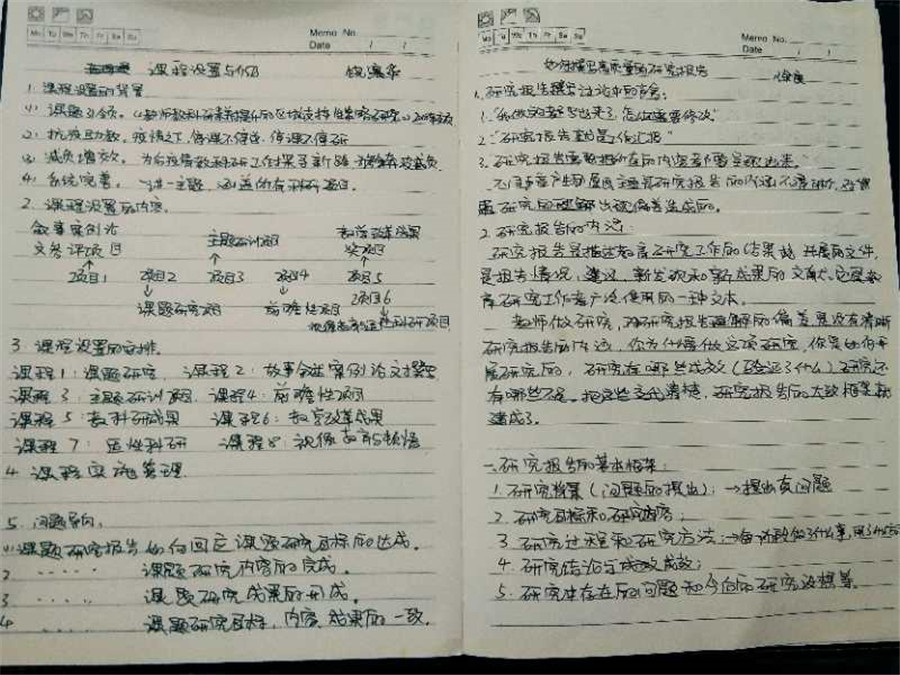 Mo Tu We Th Fr Sa Su
Memo No.
Date / /
课程设置与
1. 课程设置的背景
(1) 课题引领。
(2) 抗疫助教。疫情之下,停课不停学,停课不停研
(3) 减负增效。为
(4) 系统完善。一进一主题,涵盖所有科研项目。
2. 课程设置的内容。
叙事案例论
文参评项目
主题研训项目
教学改革成果
奖项目
项目1 项目2 项目3 项目4 项目5
课题研究项目
前瞻性项目
项目6
3. 课程设置的安排。
课程1:课题研究 课程2:故事叙述案例论文撰写
课程3:主题研训项目 课程4:前瞻性项目
课程5:教科研成果 课程6:教学改革成果
课程7:区性科研 课程8:
4. 课程实施管理
5. 问题导向。
(1) 课题研究报告如何回应课题研究目标的达成。
2 ...... 课题研究内容的完成。
3 ...... 课题研究成果的形成。
4 ...... 课题研究目标、内容、成果的一致。
Mo Tu We Th Fr Sa Su
Memo No.
Date / /
如何撰写高质量的研究报告
1. 研究报告撰写讨论中的声音:
1. "我做的都写出来了,怎么还要修改"
2. "研究报告写的是工作汇报"
3. "研究报告需要把所有的内容都要呈现出来。"
2. 研究报告的内涵:
研究报告是描述教育研究工作的结果或进展的文件,
是报告情况、建议、新发现和新成果的文献,它是教
育研究工作者广泛使用的一种文本。
老师做研究,对研究报告理解的偏差是没有清晰
研究报告的内涵,你为什么要做这项研究,你是如何开
展研究的,研究有哪些成效(验证了什么)研究还
有哪些不足。把这些交代清楚,研究报告的大致框架就
建成了。
一、研究报告的基本框架:
1. 研究背景(问题的提出):→提出真问题
2. 研究目标和研究内容;
3. 研究过程和研究方法:→每阶段做了什么事,用了什么方
4. 研究结论与成效成效;
5. 研究中存在的问题和今后的研究设想等。